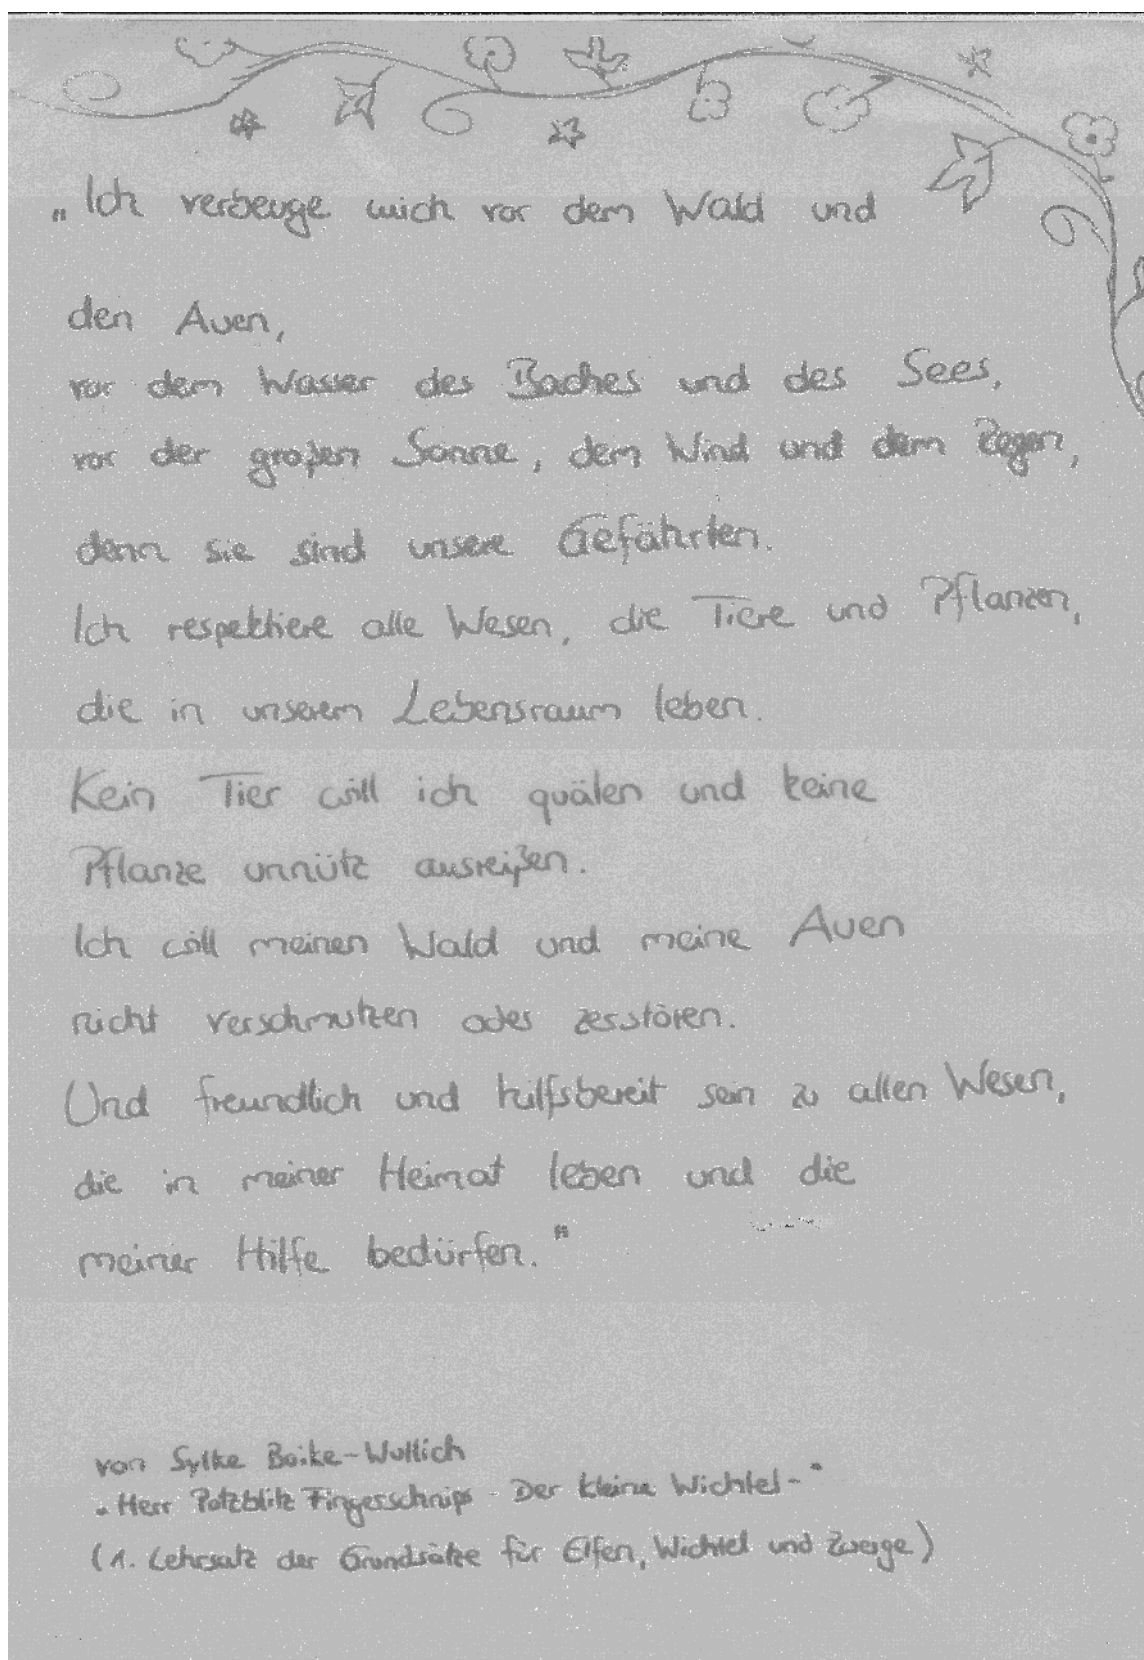 „Ich verbeuge mich vor dem Wald und
den Auen,
vor dem Wasser des Baches und des Sees,
vor der großen Sonne, dem Wind und dem Regen,
denn sie sind unsere Gefährten.
Ich respektiere alle Wesen, die Tiere und Pflanzen,
die in unserem Lebensraum leben.
Kein Tier will ich quälen und keine
Pflanze unnütz ausreißen.
Ich will meinen Wald und meine Auen
nicht verschmutzen oder zerstören.
Und freundlich und hilfsbereit sein zu allen Wesen,
die in meiner Heimat leben und die
meiner Hilfe bedürfen."
von Sylke Boike-Wullich
„Herr Potzblitz Fingerschnips - Der kleine Wichtel-"
(1. Lehrsatz der Grundsätze für Elfen, Wichtel und Zwerge)